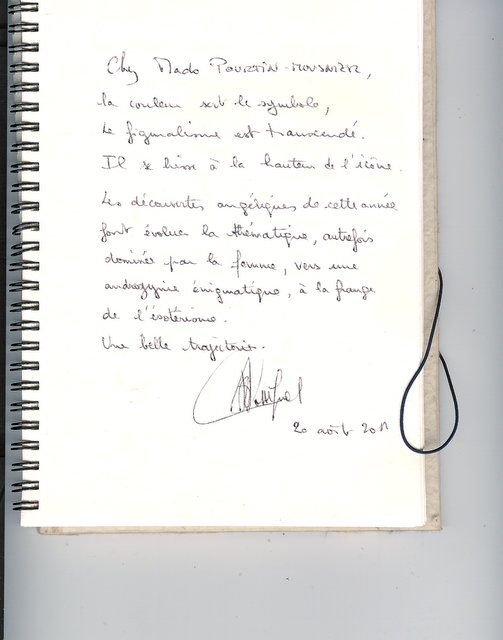 Chez Mado POURTIN-MOUSNIER,
la couleur sert le symbole,
Le figuralisme est transcendé.
Il se hisse à la hauteur de l'icône.
Les découvertes angéliques de cette année
font évoluer la thématique, autrefois
dominée par la femme, vers une
androgynie énigmatique, à la frange
de l'ésotérisme.
Une belle trajectoire.
20 août 2011